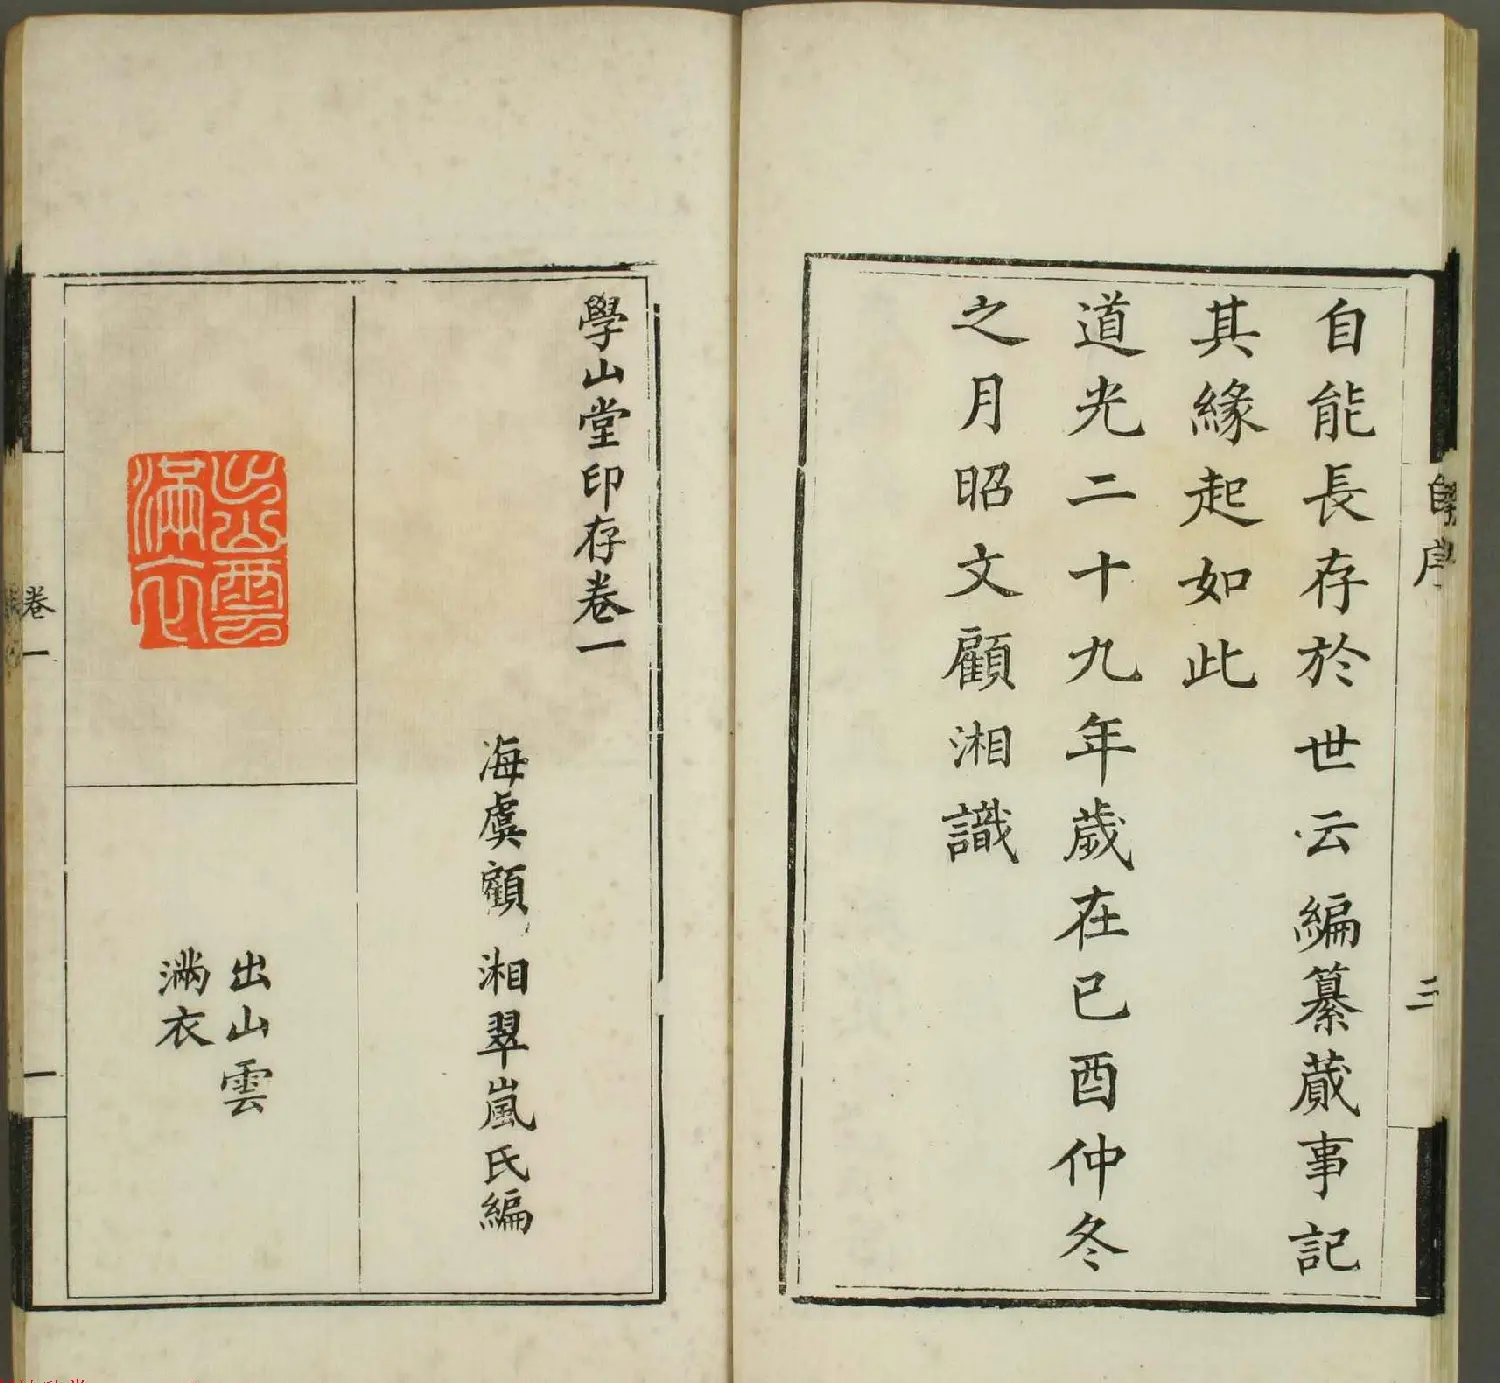 自能長存於世云編纂蕆事記
其緣起如此
道光二十九年歲在己酉仲冬
之月昭文顧湘識
自序
三
學山堂印存卷一
海虞顧湘翠嵐氏編
出山雲
滿衣
出山雲
滿衣
卷一
一